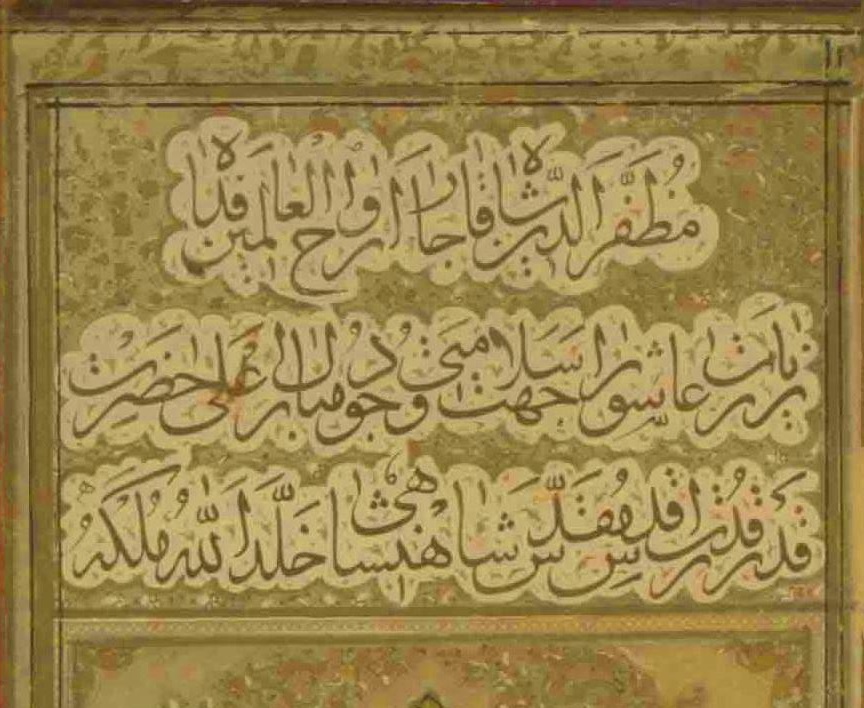 مُظَفَّرَ الدّین شاه قاجار اَرواحُ العالَمین فِداه
زیارت عاشورا جهت سَلامتی وجودِ مبارک اعلی حضرت
قَدَر قُدرت اقدس مُقدّس شاهنشاهی خَلَّدَ اللهُ مُلکَهُ